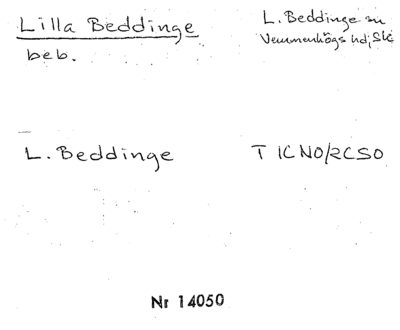 Lilla Beddinge
beb.
L. Beddinge sn
Vemmenhögs hd, Sk
L. Beddinge
T 1CNO/2CSO
Nr 14050